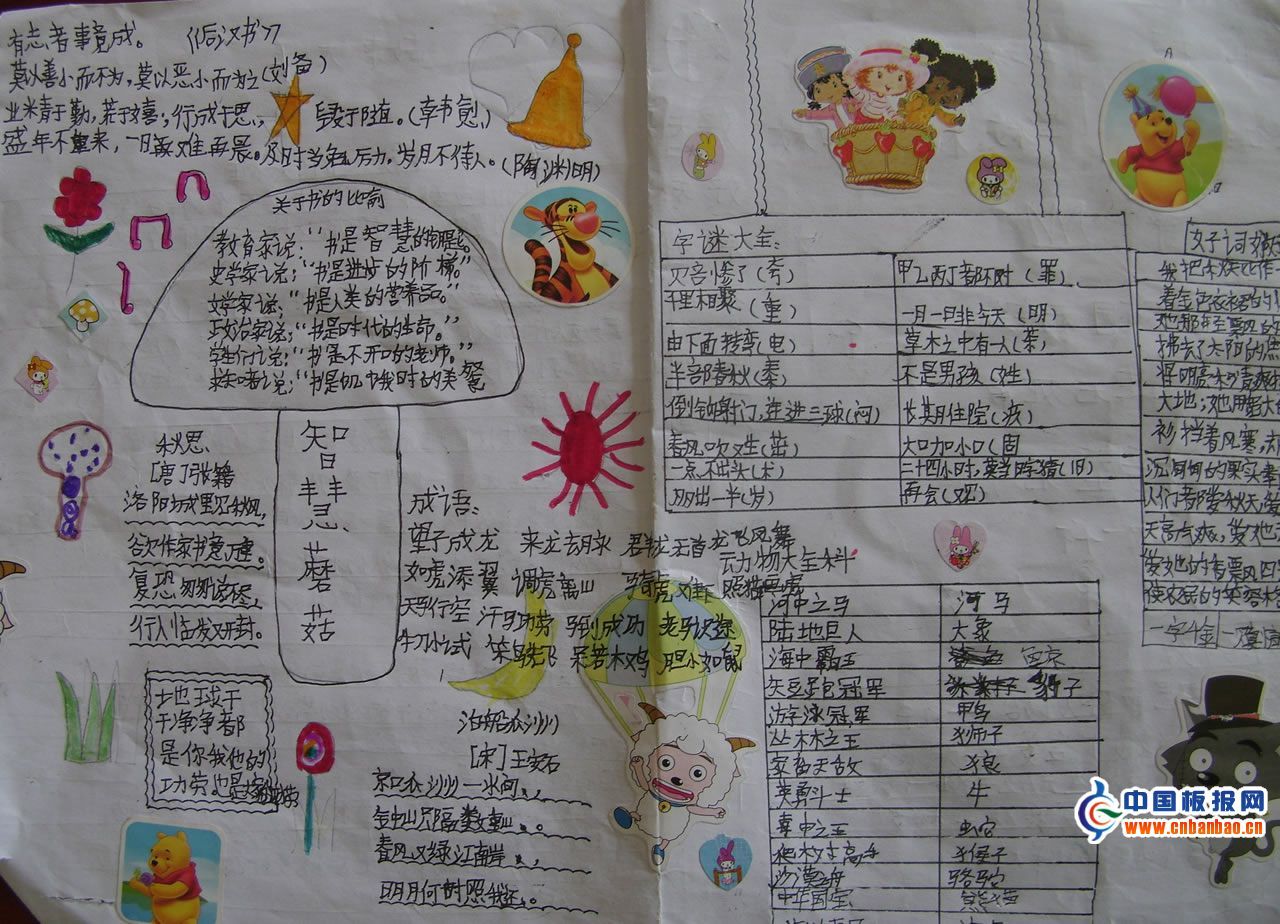 有志者事竟成。 《后汉书》
莫以善小而不为,莫以恶小而为之(刘备)
业精于勤,荒于嬉;行成于思, 毁于随。(韩愈)
盛年不重来,一日难再晨。及时当勉励,岁月不待人。(陶渊明)
关于书的比喻
教育家说:“书是智慧的钥匙。”
史学家说:“书是进步的阶梯。”
文学家说:“书是人类的营养品。”
政治家说:“书是时代的生命。”
学生们说:“书是不开口的老师。”
求知者说:“书是饥饿时的美餐
智
慧
蘑
菇
秋思
[唐]张籍
洛阳城里见秋风,
欲作家书意万重。
复恐匆匆说不尽,
行人临发又开封。
地球干
干净净都
是你我他的
功劳也是
成语:
望子成龙 来龙去脉 群龙无首 龙飞凤舞
如虎添翼 调虎离山 骑虎难下 照猫画虎
天马行空 汗马功劳 马到成功 老马识途
牛刀小试 笨鸟先飞 呆若木鸡 胆小如鼠
泊船瓜洲
[宋]王安石
京口瓜洲一水间,
钟山只隔数重山。
春风又绿江南岸,
明月何时照我还。
字谜大全:
灾音惨了(夸) 甲乙丙丁都不对(罪)
千里相聚(重) 一月一日非今天(明)
由下面转弯(电) 草木之中有人(茶)
半部春秋(秦) 不是男孩(姓)
倒钩射门,连进三球(闷) 长期住院(疾)
春风吹又生(茁) 大口加小口(固
一点不出头(术) 二十四小时,莫当日字猜(旧)
多出一半(岁) 再会(观)
动物大全科
河中之马 河马
陆地巨人 大象
海中霸王 鲸
短跑冠军 豹子
游泳冠军 鸭
丛林之王 狮子
家畜天敌 狼
英勇斗士 牛
毒中之王
爬树高手 猴子
沙漠之舟 骆驼
中华国宝 熊猫
好词
我把秋天比作
大地;她用
人们都爱秋天,爱
天高气爽,爱她
一字千金
中国板报网
www.cnbanbao.cn